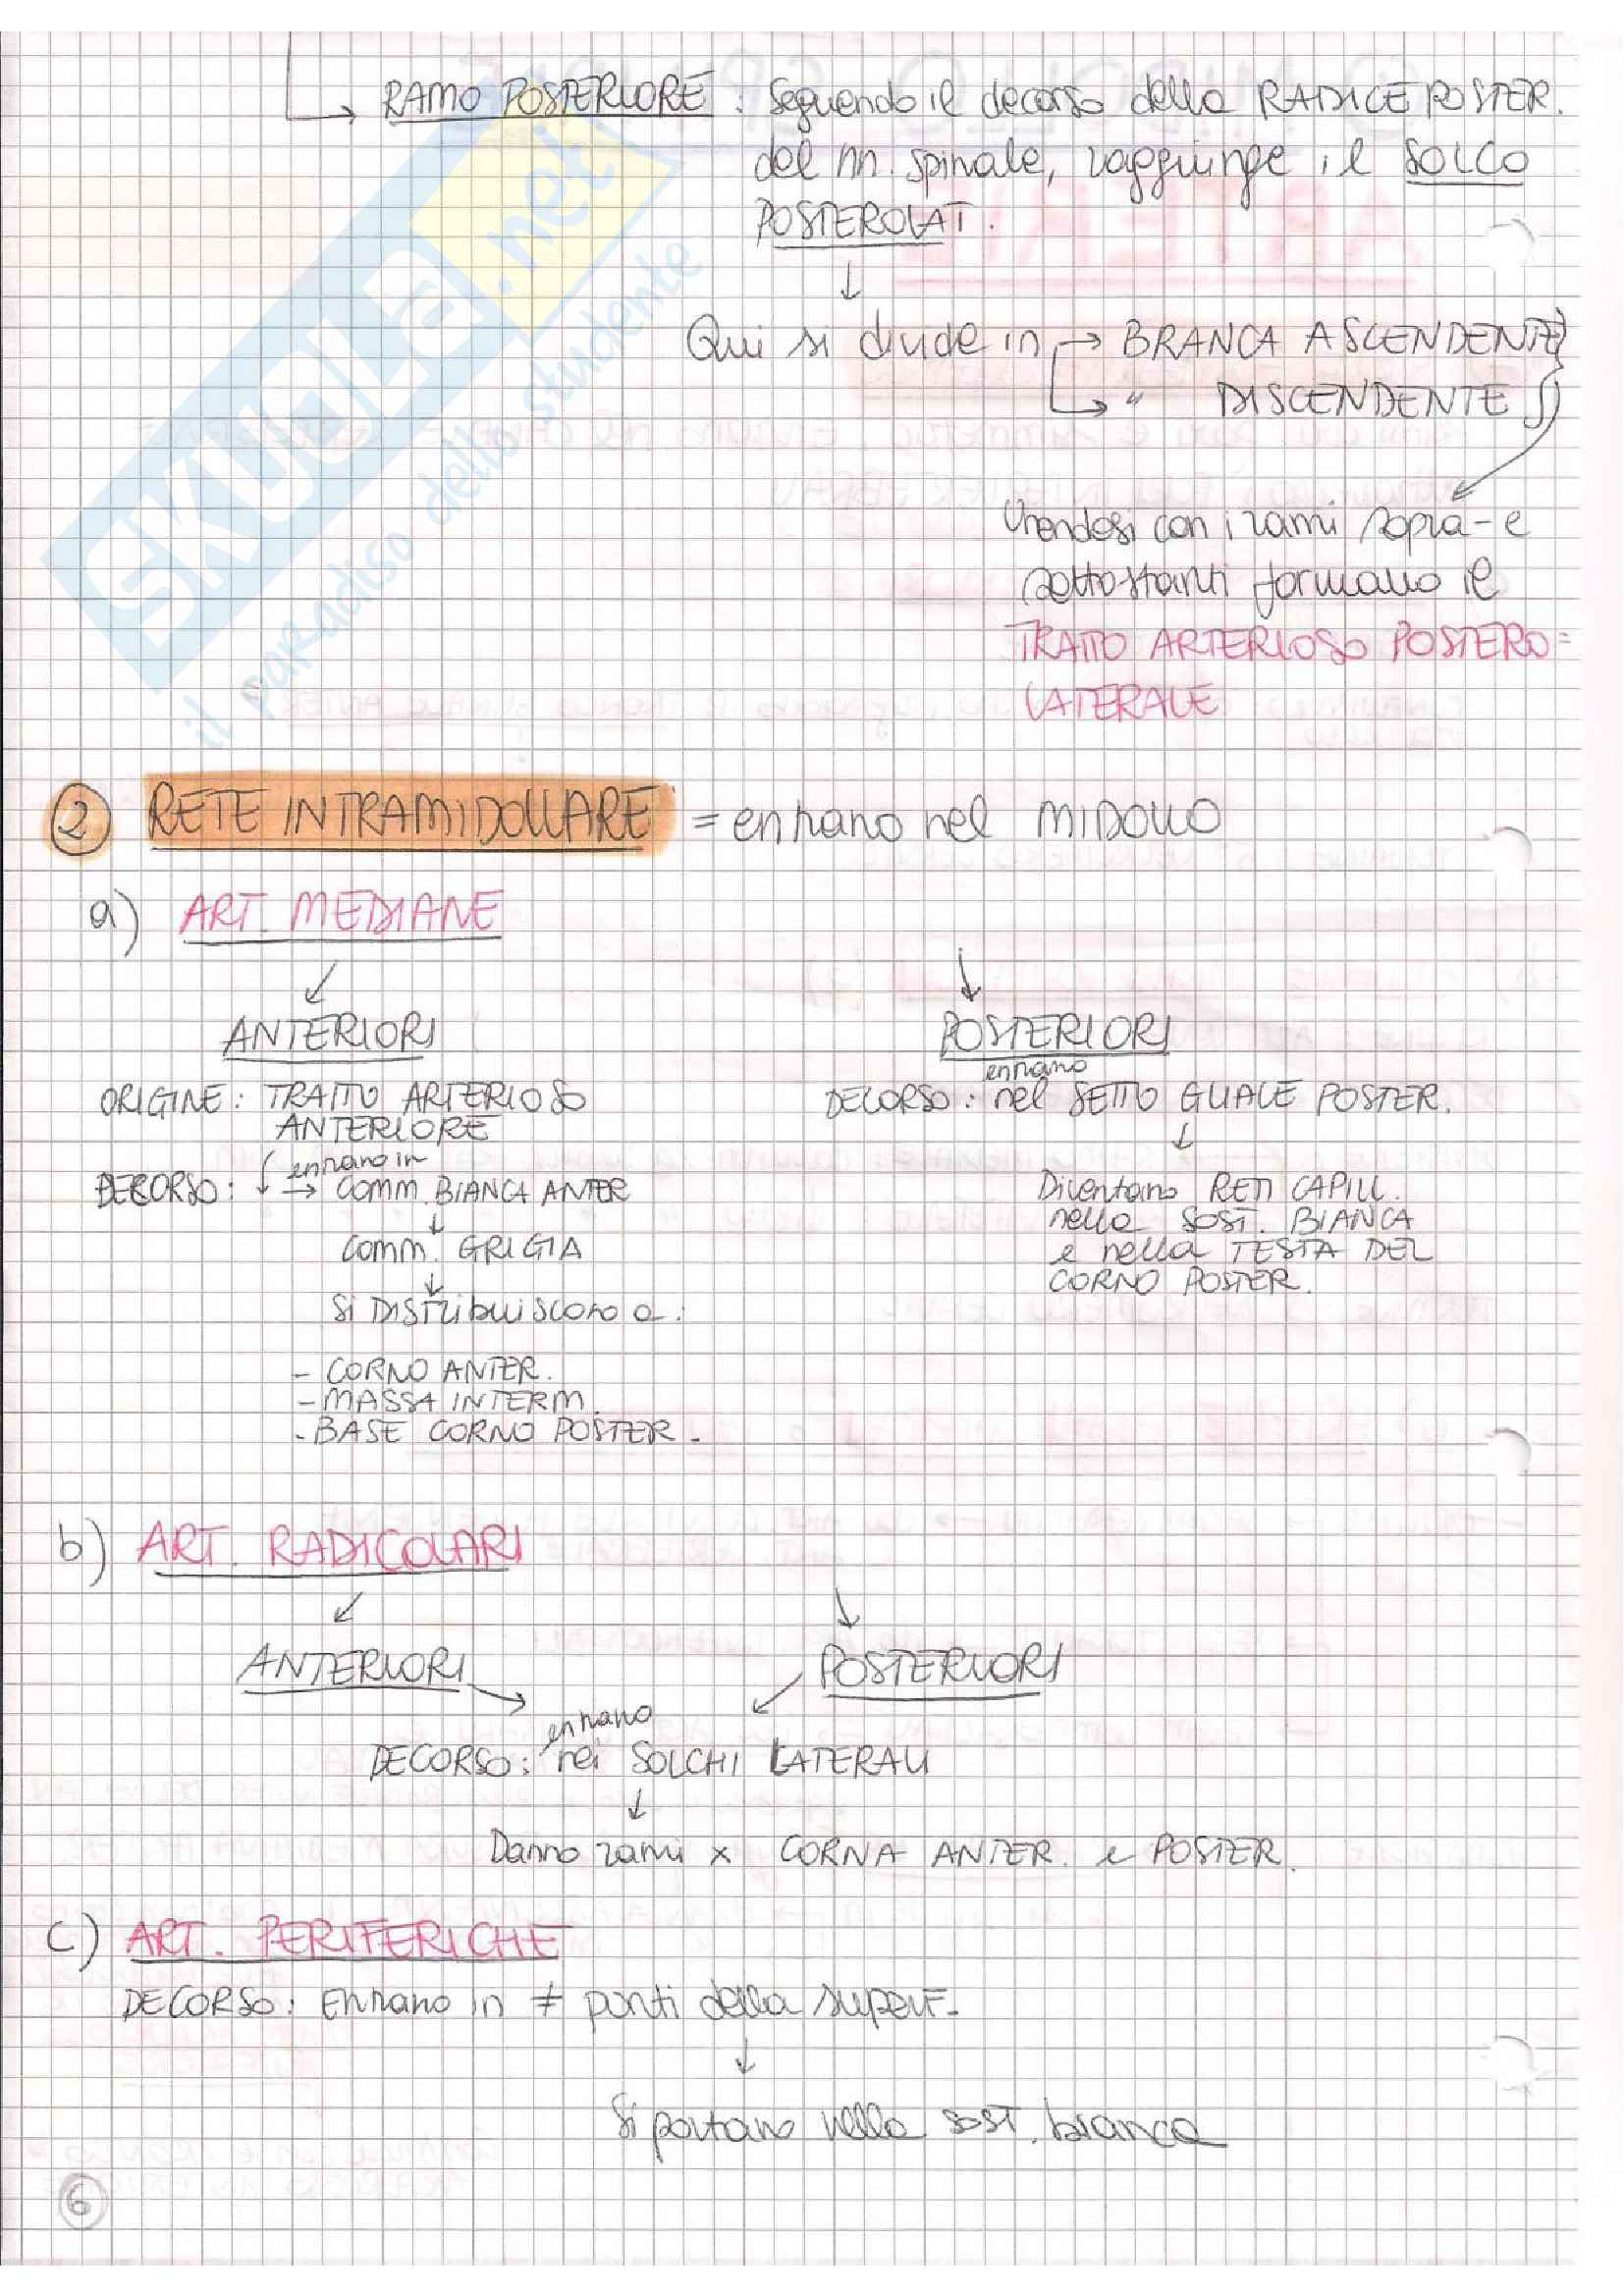 → RAMO POSTERIORE : Seguendo il decorso della RADICE POSTER.
del nn. spinale, raggiunge il SOLCO
POSTEROLAT.
↓
Qui si divide in → BRANCA ASCENDENTE
→ " DISCENDENTE
Unendosi con i rami sopra- e
sottostanti formano il
TRATTO ARTERIOSO POSTERO=
LATERALE
② RETE INTRAMIDOLLARE = entrano nel MIDOLLO
a) ART. MEDIANE
ANTERIORI
ORIGINE: TRATTO ARTERIOSO
ANTERIORE
DECORSO: ↓ entrano in
→ comm. BIANCA ANTER
↓
comm. GRIGIA
↓
Si DISTribuiscono a:
- CORNO ANTER.
- MASSA INTERM.
- BASE CORNO POSTER.
POSTERIORI
entrano
DECORSO: nel SETTO GLIALE POSTER.
↓
Diventano RETI CAPILL.
nella SOST. BIANCA
e nella TESTA DEL
CORNO POSTER.
b) ART. RADICOLARI
ANTERIORI POSTERIORI
entrano
DECORSO: nei SOLCHI LATERALI
↓
Danno rami x CORNA ANTER. e POSTER.
c) ART. PERIFERICHE
DECORSO: Entrano in ≠ punti della superf.
↓
Si portano nella sost. bianca
6
SKUOLA.net
il paradiso dello studente